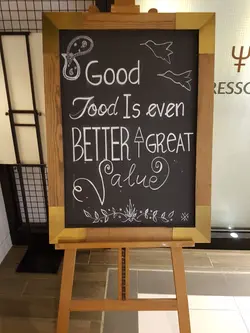 Good
Food Is even
BETTER GREAT
Value
RESSO